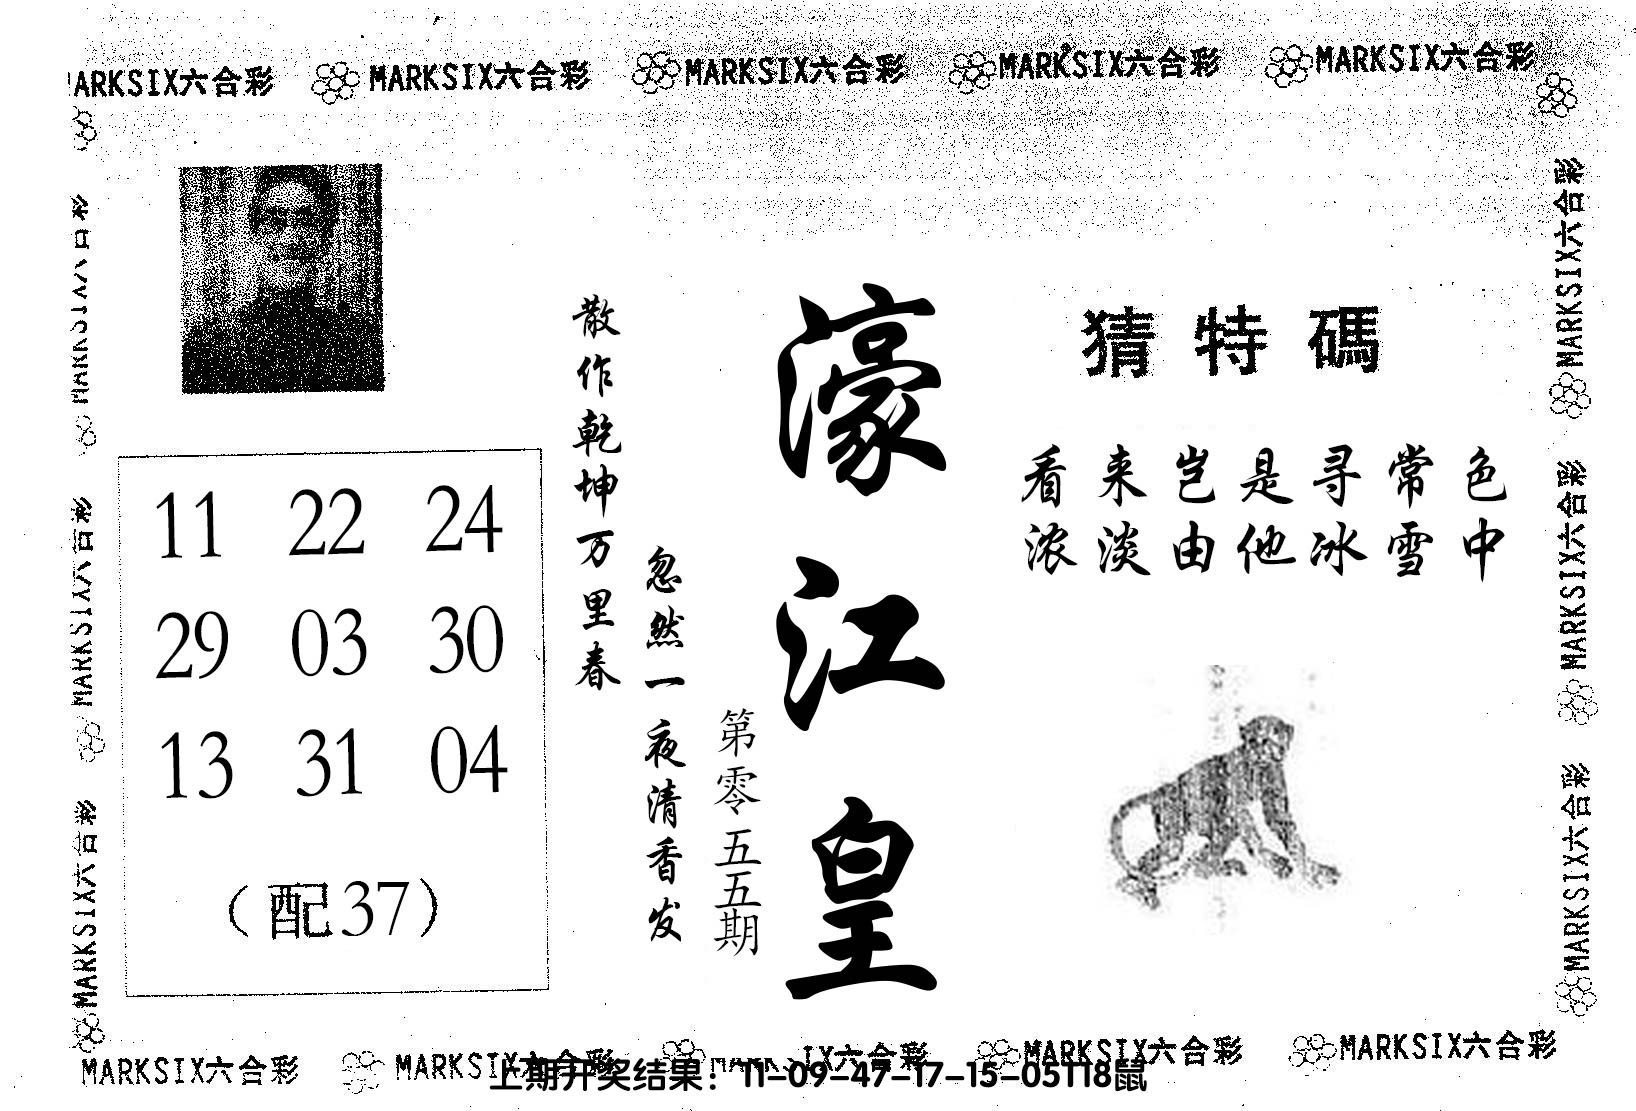 MARKSIX六合彩 MARKSIX六合彩 MARKSIX六合彩 MARKSIX六合彩 MARKSIX六合彩
猜特碼
看来岂是寻常色
浓淡由他冰雪中
濠江皇
第零五五期
忽然一夜清香发
散作乾坤万里春
11 22 24
29 03 30
13 31 04
（配37）
MARKSIX六合彩
MARKSIX六合彩
MARKSIX六合彩
MARKSIX六合彩
MARKSIX六合彩
MARKSIX六合彩
MARKSIX六合彩 MARKSIX六合彩 IX六合彩 MARKSIX六合彩 MARKSIX六合彩
上期开奖结果：11-09-47-17-15-05T18鼠